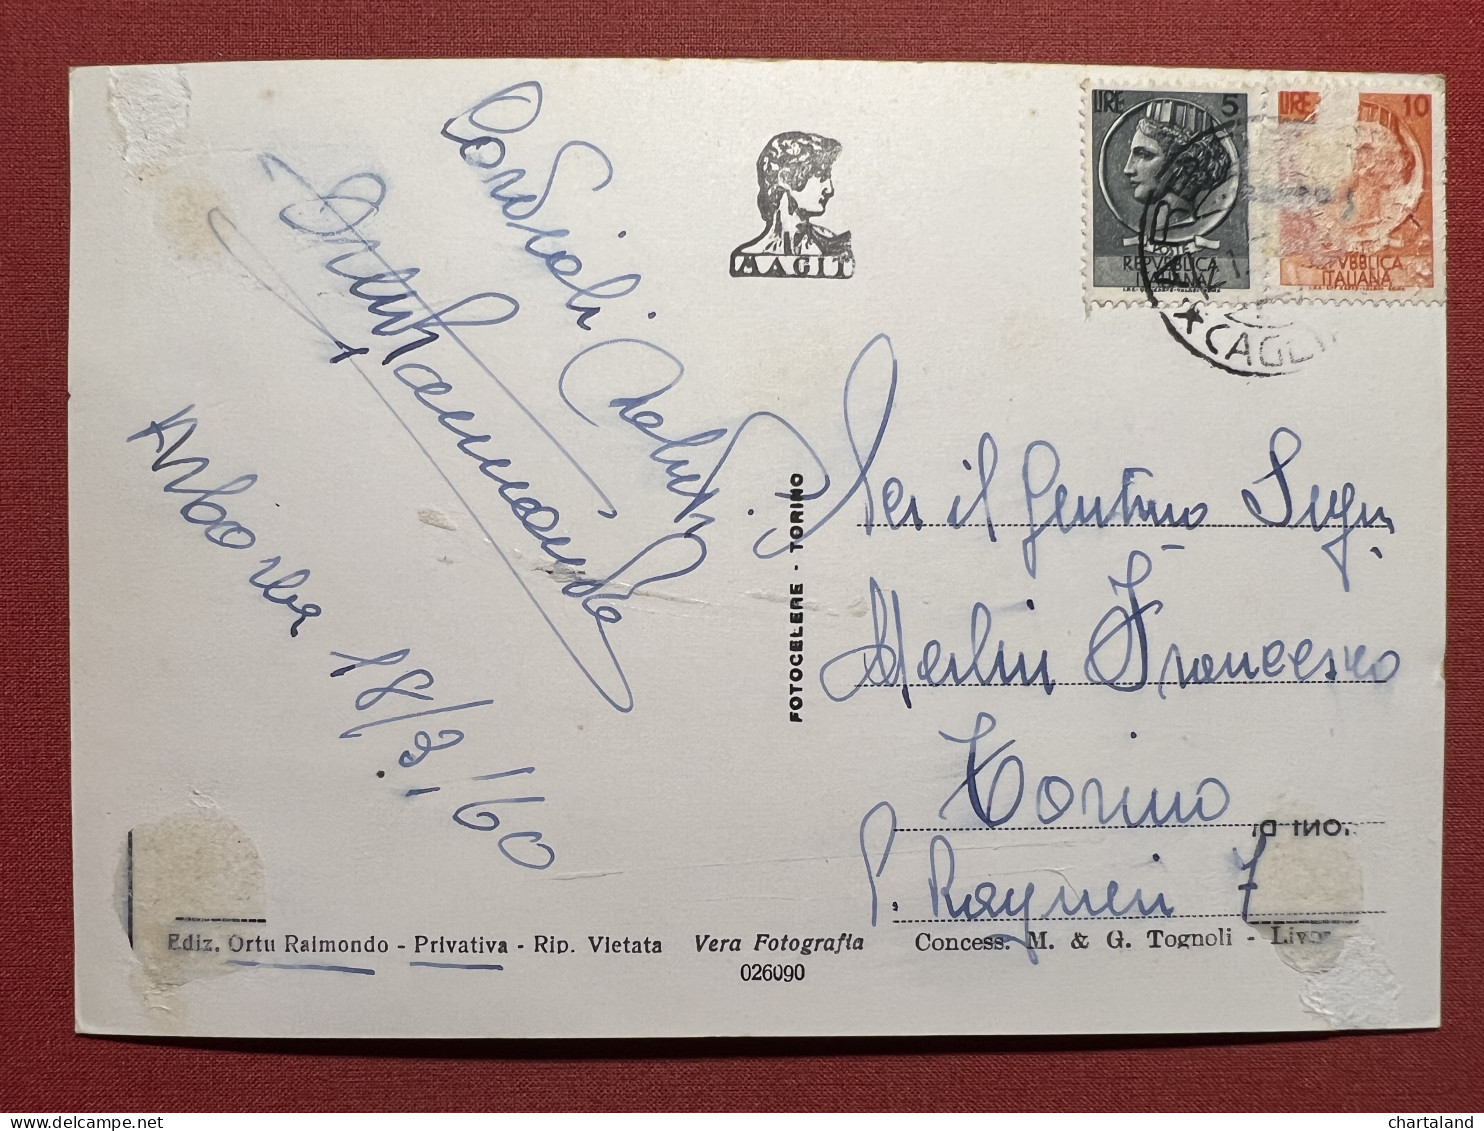 Cordiali Saluti
Ortu Raimondo
Arborea 18/3/60
MAGIT
LIRE 5
POSTE
REPVBBLICA
ITALIANA
LIRE 10
REPVBBLICA
ITALIANA
CAGLI
FOTOCELERE - TORINO
Per il Gentimo Sign
Merlin Francesco
Torino
Ediz. Ortu Raimondo - Privativa - Rip. Vietata
Vera Fotografia
Concess. M. & G. Tognoli - Livor
026090
chartaland